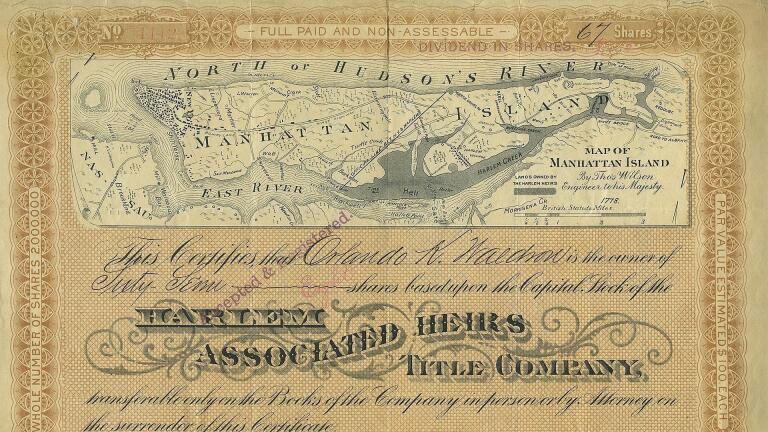 No 4112
FULL PAID AND NON-ASSESSABLE
67 Shares
DIVIDEND IN SHARES,
NORTH OR HUDSON'S RIVER
MANHATTAN ISLAND
HARLEM CREEK
EAST RIVER
Hell
NAS SAU
Brooklyn
MAP OF
MANHATTAN ISLAND
By Thos Wilson
Engineer to his Majesty.
1778.
British Statute Miles
LANDS OWNED BY
THE HARLEM HEIRS
This Certifies that Orlando K. Waldron is the owner of
Sixty Seven shares based upon the Capital Stock of the
Accepted & registered.
HARLEM
ASSOCIATED HEIRS
TITLE COMPANY,
transferable only on the Books of the Company in person or by Attorney on
the surrender of this Certificate
WHOLE NUMBER OF SHARES 2000.000
PAR VALUE ESTIMATED $100 EACH